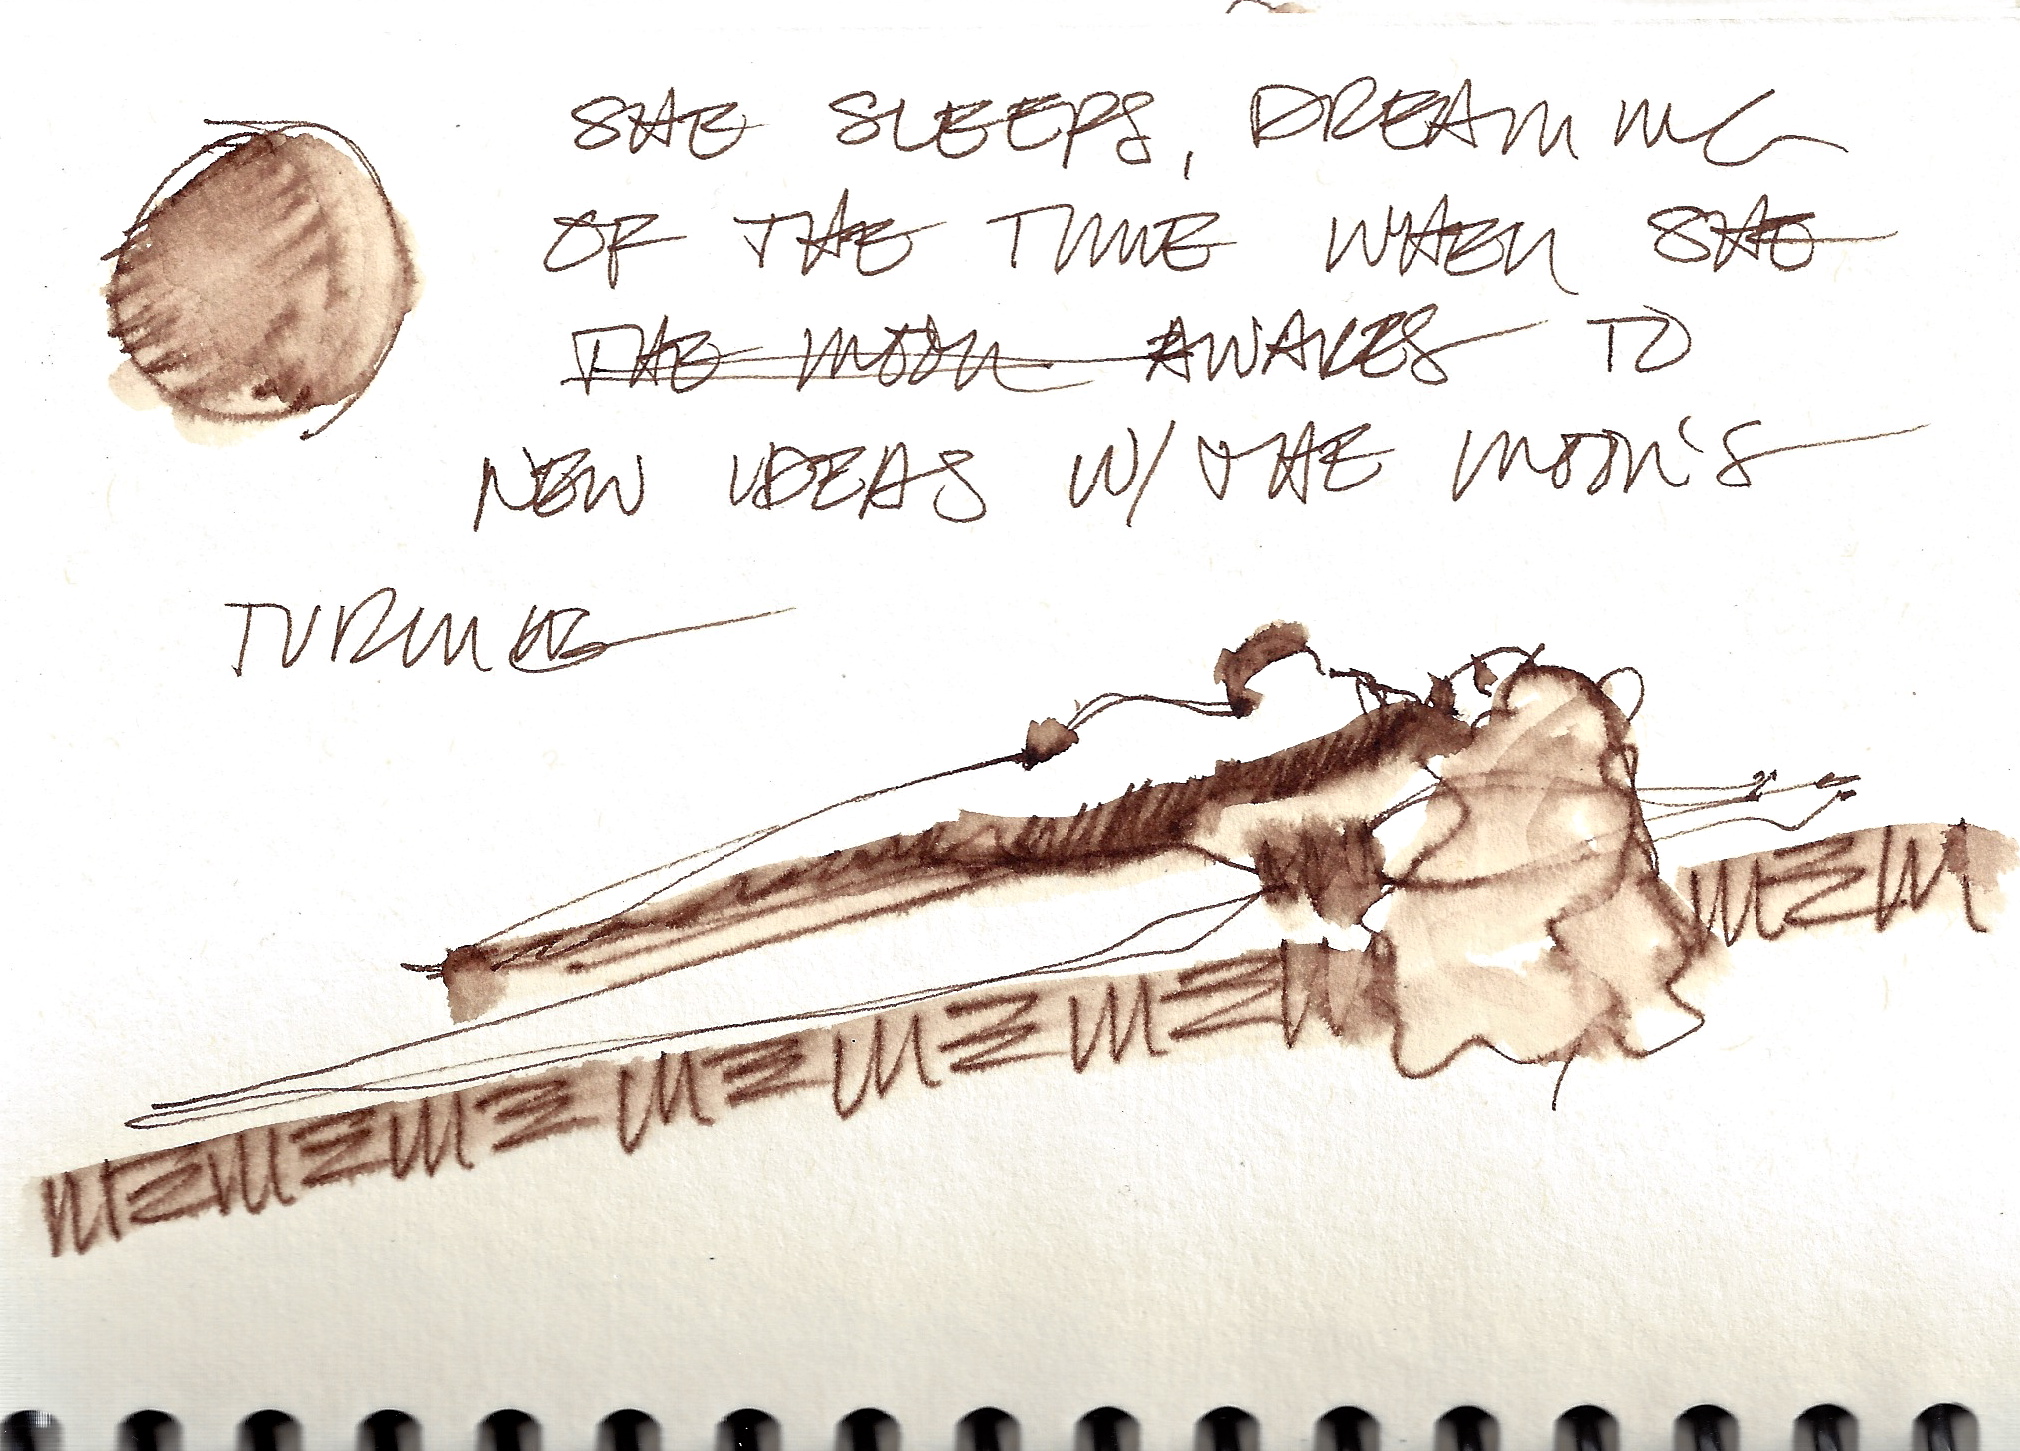 SHE SLEEPS, DREAMING
OF THE TIME WHEN SHE
THE MOON AWAKES TO
NEW IDEAS W/ THE MOON'S
TURNING